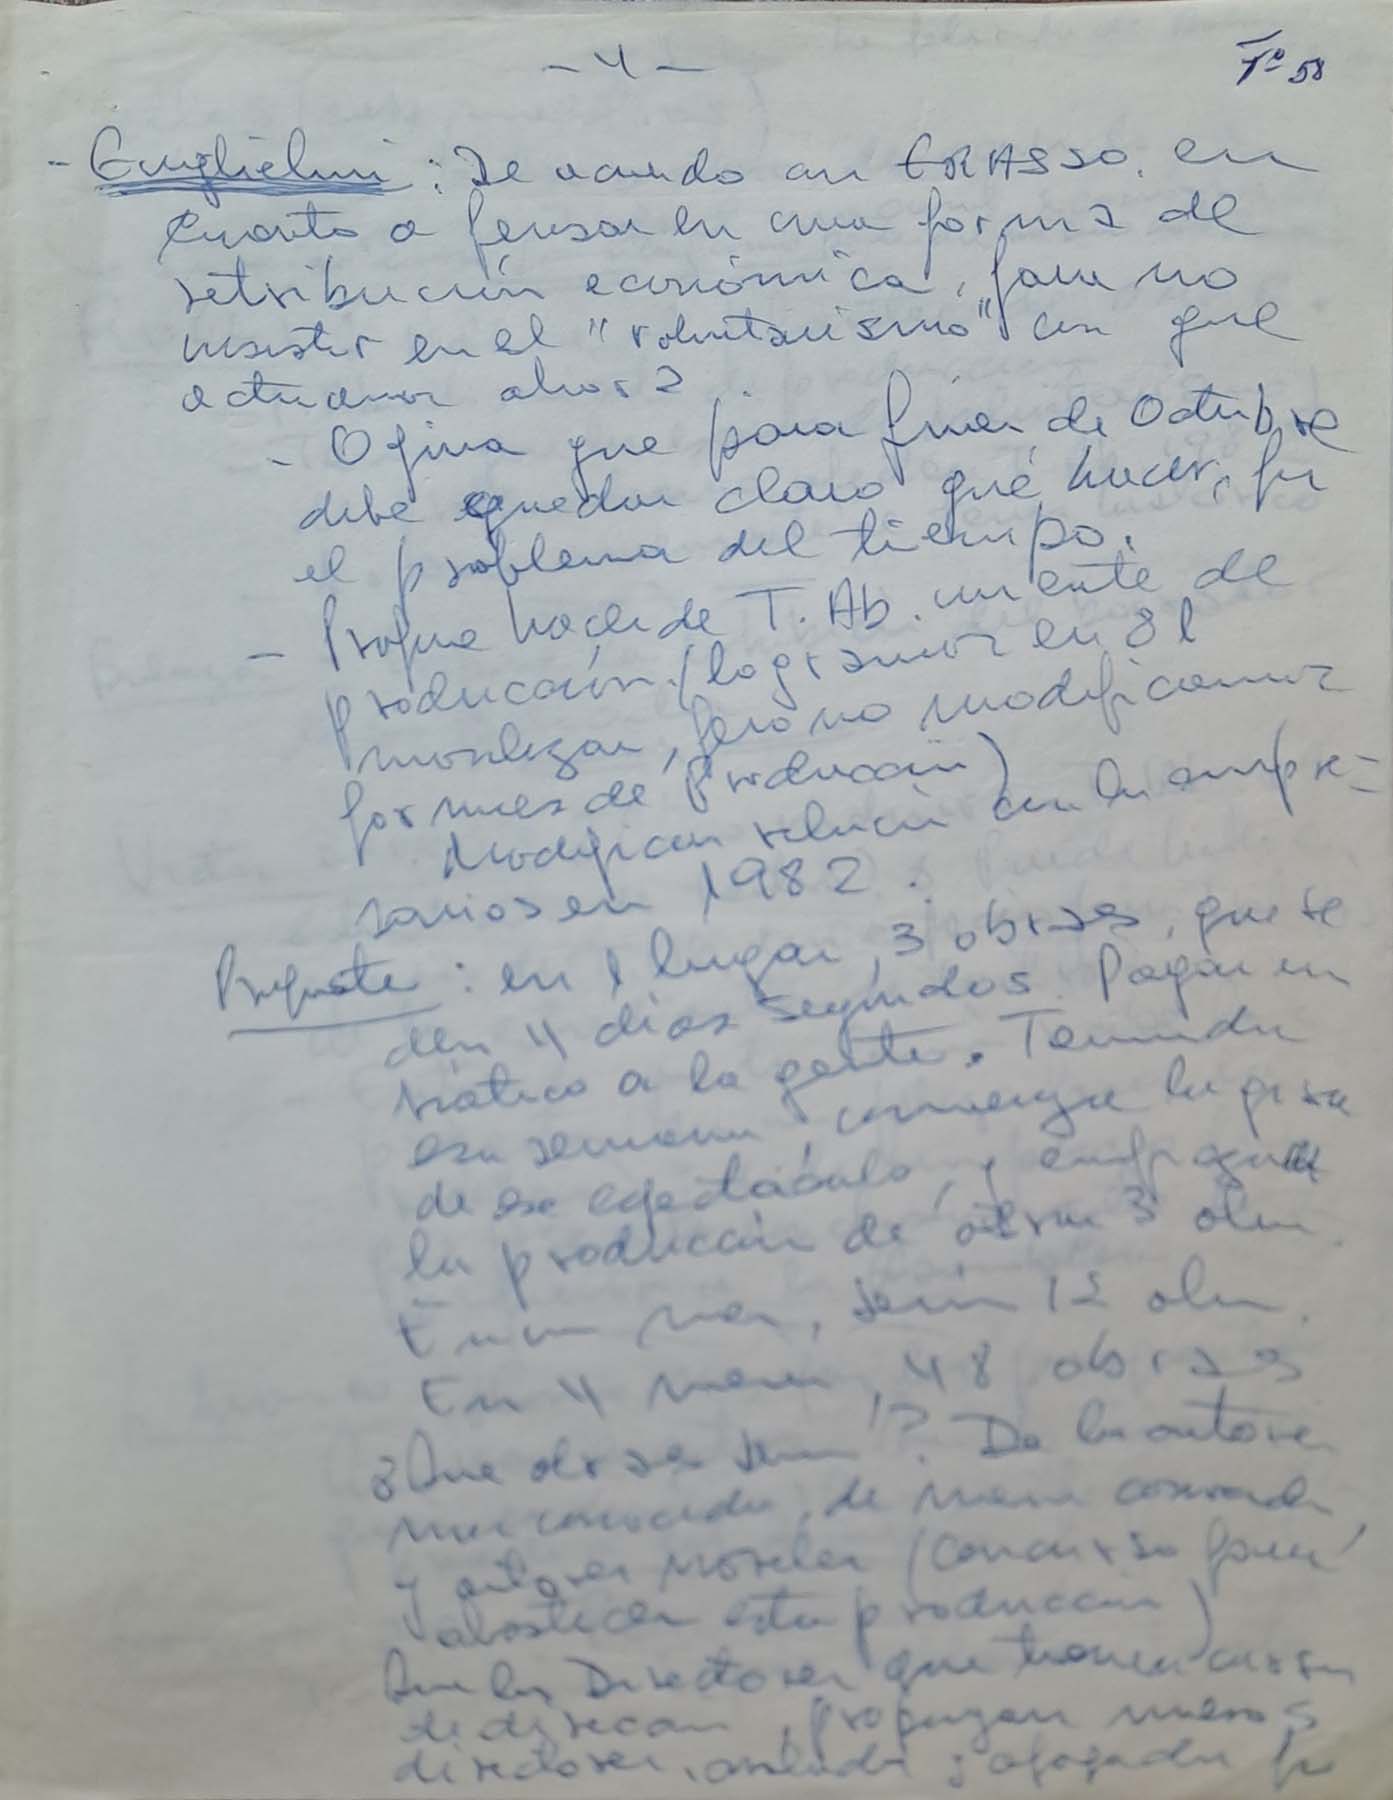 - 4 -
Tº 58
- Guglielmi : De acuerdo con GRASSO, en
cuanto a pensar en una forma de
retribución económica, para no
insistir en el "voluntarismo" con que
actuamos ahora
- Opina que para fines de Octubre
debe quedar claro qué hacer, por
el problema del tiempo.
- Propone hacer de T. Ab. un ente de
producción. (logramos en 81
movilizar, pero no modificamos
formas de producción)
Modificar relación con los empre-
sarios en 1982.
Propuesta : en 1 lugar, 3 obras, que se
den 4 días seguidos. Pagar un
viático a la gente. Terminada
esa semana, comienza la gira
de ese espectáculo, y empieza
la producción de otras 3 obras.
En un mes, serían 12 obras.
En 4 meses, 48 obras
¿Que obras serían? De los autores
más conocidos, de menos conocidos,
y autores noveles (concurso para
abastecer esta producción)
Que los Directores que tienen cursos
de dirección, propongan nuevos
directores, y apoyados por